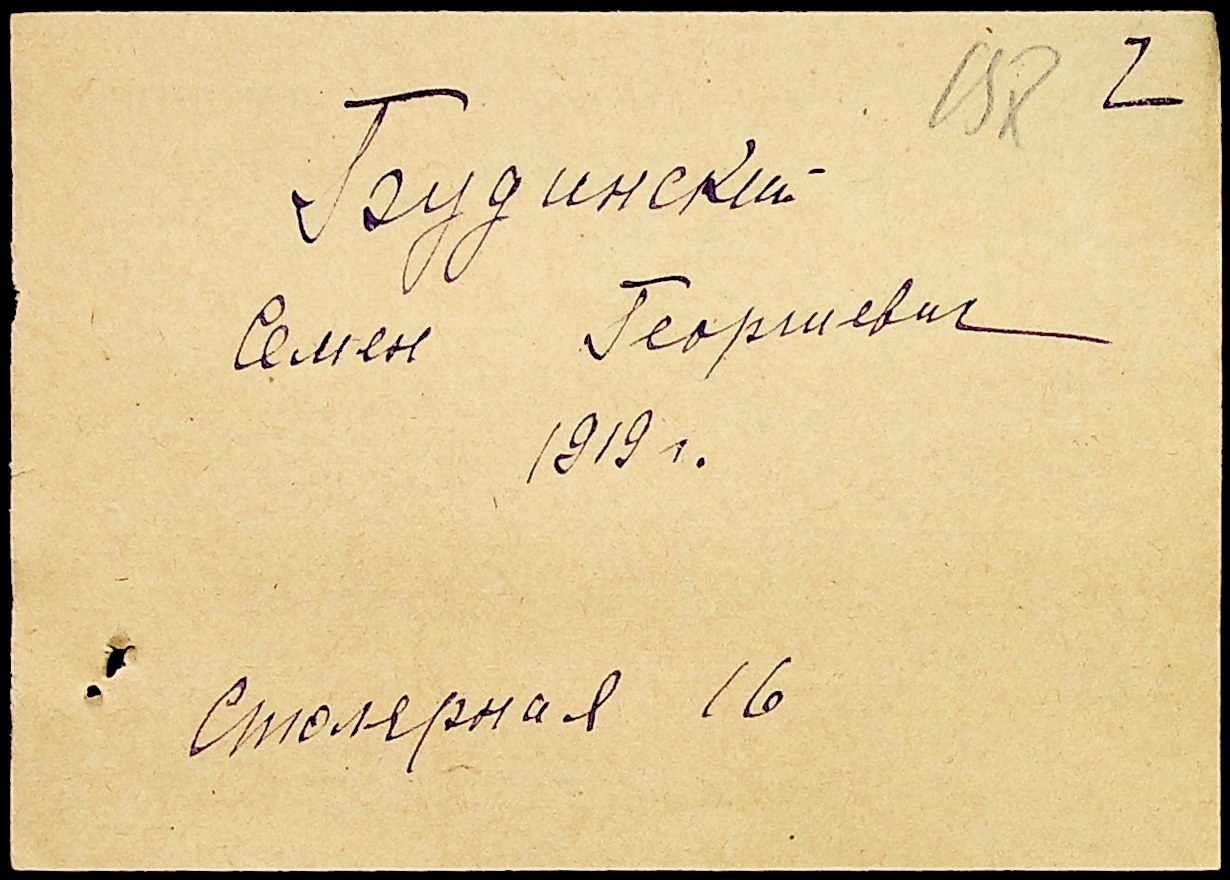 2
Будинский
Семен Георгиевич
1919 г.
Столярная 16